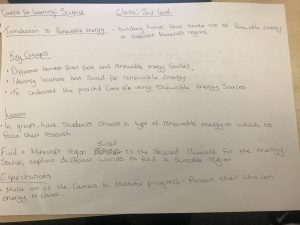 Context for Learning: Science    Class: 2nd Level
Introduction to Renewable energy - building homes that make use of Renewable energy
in different Minecraft regions
Key Concepts
• Difference between fossil fuels and renewable energy sources.
• Identify locations best suited for renewable energy.
• To understand the pros and cons of using renewable energy sources
Lesson
• In groups have students choose a type of renewable energy in which to
focus their research
Find a Minecraft region suited to the selected climate for the energy
source, explore different worlds to find a suitable region
Expectations
• Make use of the camera to monitor progress - Present their chosen
energy to class.